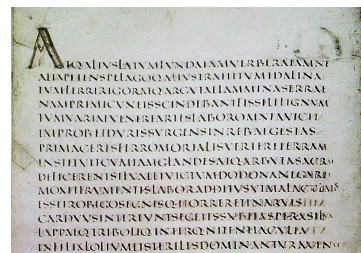 ATQALIVSLATVMFVNDAIAMVERBERATAMNE
ALTAPETENSPELAGOQALIVSTRAHITVMIDALINA
TVMFERRIRIGORATQARGVTAELAMMINASERRAE
NAMPRIMICVNEISSCINDEBANTFISSILELIGNVM
TVMVARIAEVENEREARTESLABOROMNIAVICIT
IMPROBETDVRISSVRGENSINREBAEGESTAS
PRIMACERESFERROMORTALISVERTERETERRAM
INSTITVITCVMIAMGLANDESATQARBVTASACRAE
DEFICERENTSILVAEETVICTVMDODONANEGARET
MOXETFRVMENTISLABORADDITVSVTMALACVLMOS
ESSETROBIGOSEGNISQHORRERETINARVIS
CARDVVSINTEREVNTSEGETESSVBITASPERASILVA
LAPPAEQTRIBOLIQINTERQNITENTIACVLTA
INFELIXLOLIVMETSTERILESDOMINANTVRAVENAE